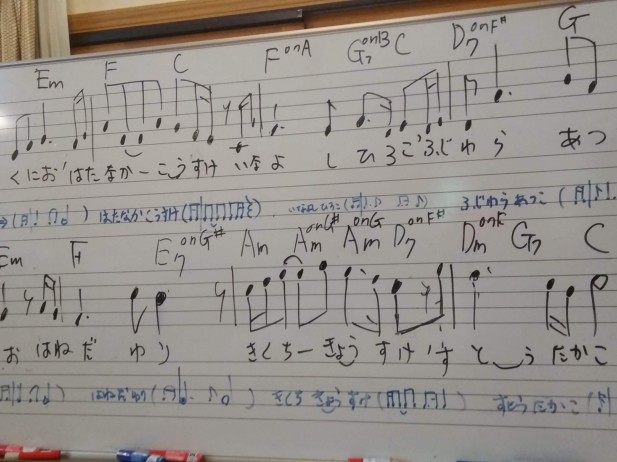 Em F C FonA G7onB C D7onF# G
くにお はたなか ー こうすけ いなよ し ひろこ ふじわら あつ
はたなかこうすけ ( ) いなよしひろこ ( ) ふじわらあつこ (
Em F E7onG# Am AmonG# AmonG D7onF# DmonF G7 C
お はねだ ゆり きくち ー きょうすけ すとう たかこ
( ) はねだゆり ( ) きくち きょうすけ ( ) すとうたかこ (